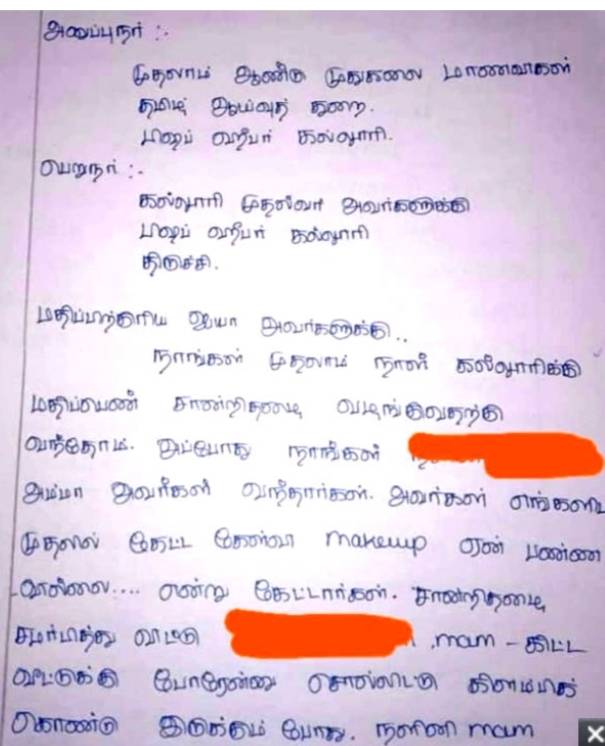 அனுப்புநர் :-
முதலாம் ஆண்டு முதுகலை மாணவர்கள்
தமிழ் ஆய்வுத் துறை.
பிஷப் ஹீபர் கல்லூரி.
பெறுநர் :-
கல்லூரி முதல்வர் அவர்களுக்கு
பிஷப் ஹீபர் கல்லூரி
திருச்சி.
மதிப்பிற்குரிய ஐயா அவர்களுக்கு..
நாங்கள் முதலாம் நாள் கல்லூரிக்கு
மதிப்பெண் சான்றிதழை வழங்குவதற்கு
வந்தோம். அப்போது நாங்கள்
அம்மா அவர்கள் வந்தார்கள். அவர்கள் எங்களிட
முதலில் கேட்ட கேள்வி makeup ஏன் பண்ண
வில்லை.... என்று கேட்டார்கள். சான்றிதழை
சமர்பித்து விட்டு mam - கிட்ட
வீட்டுக்கு போறேன்னு சொல்லிட்டு கிளம்பிக்
கொண்டு இருக்கும் போது. நளினி mam